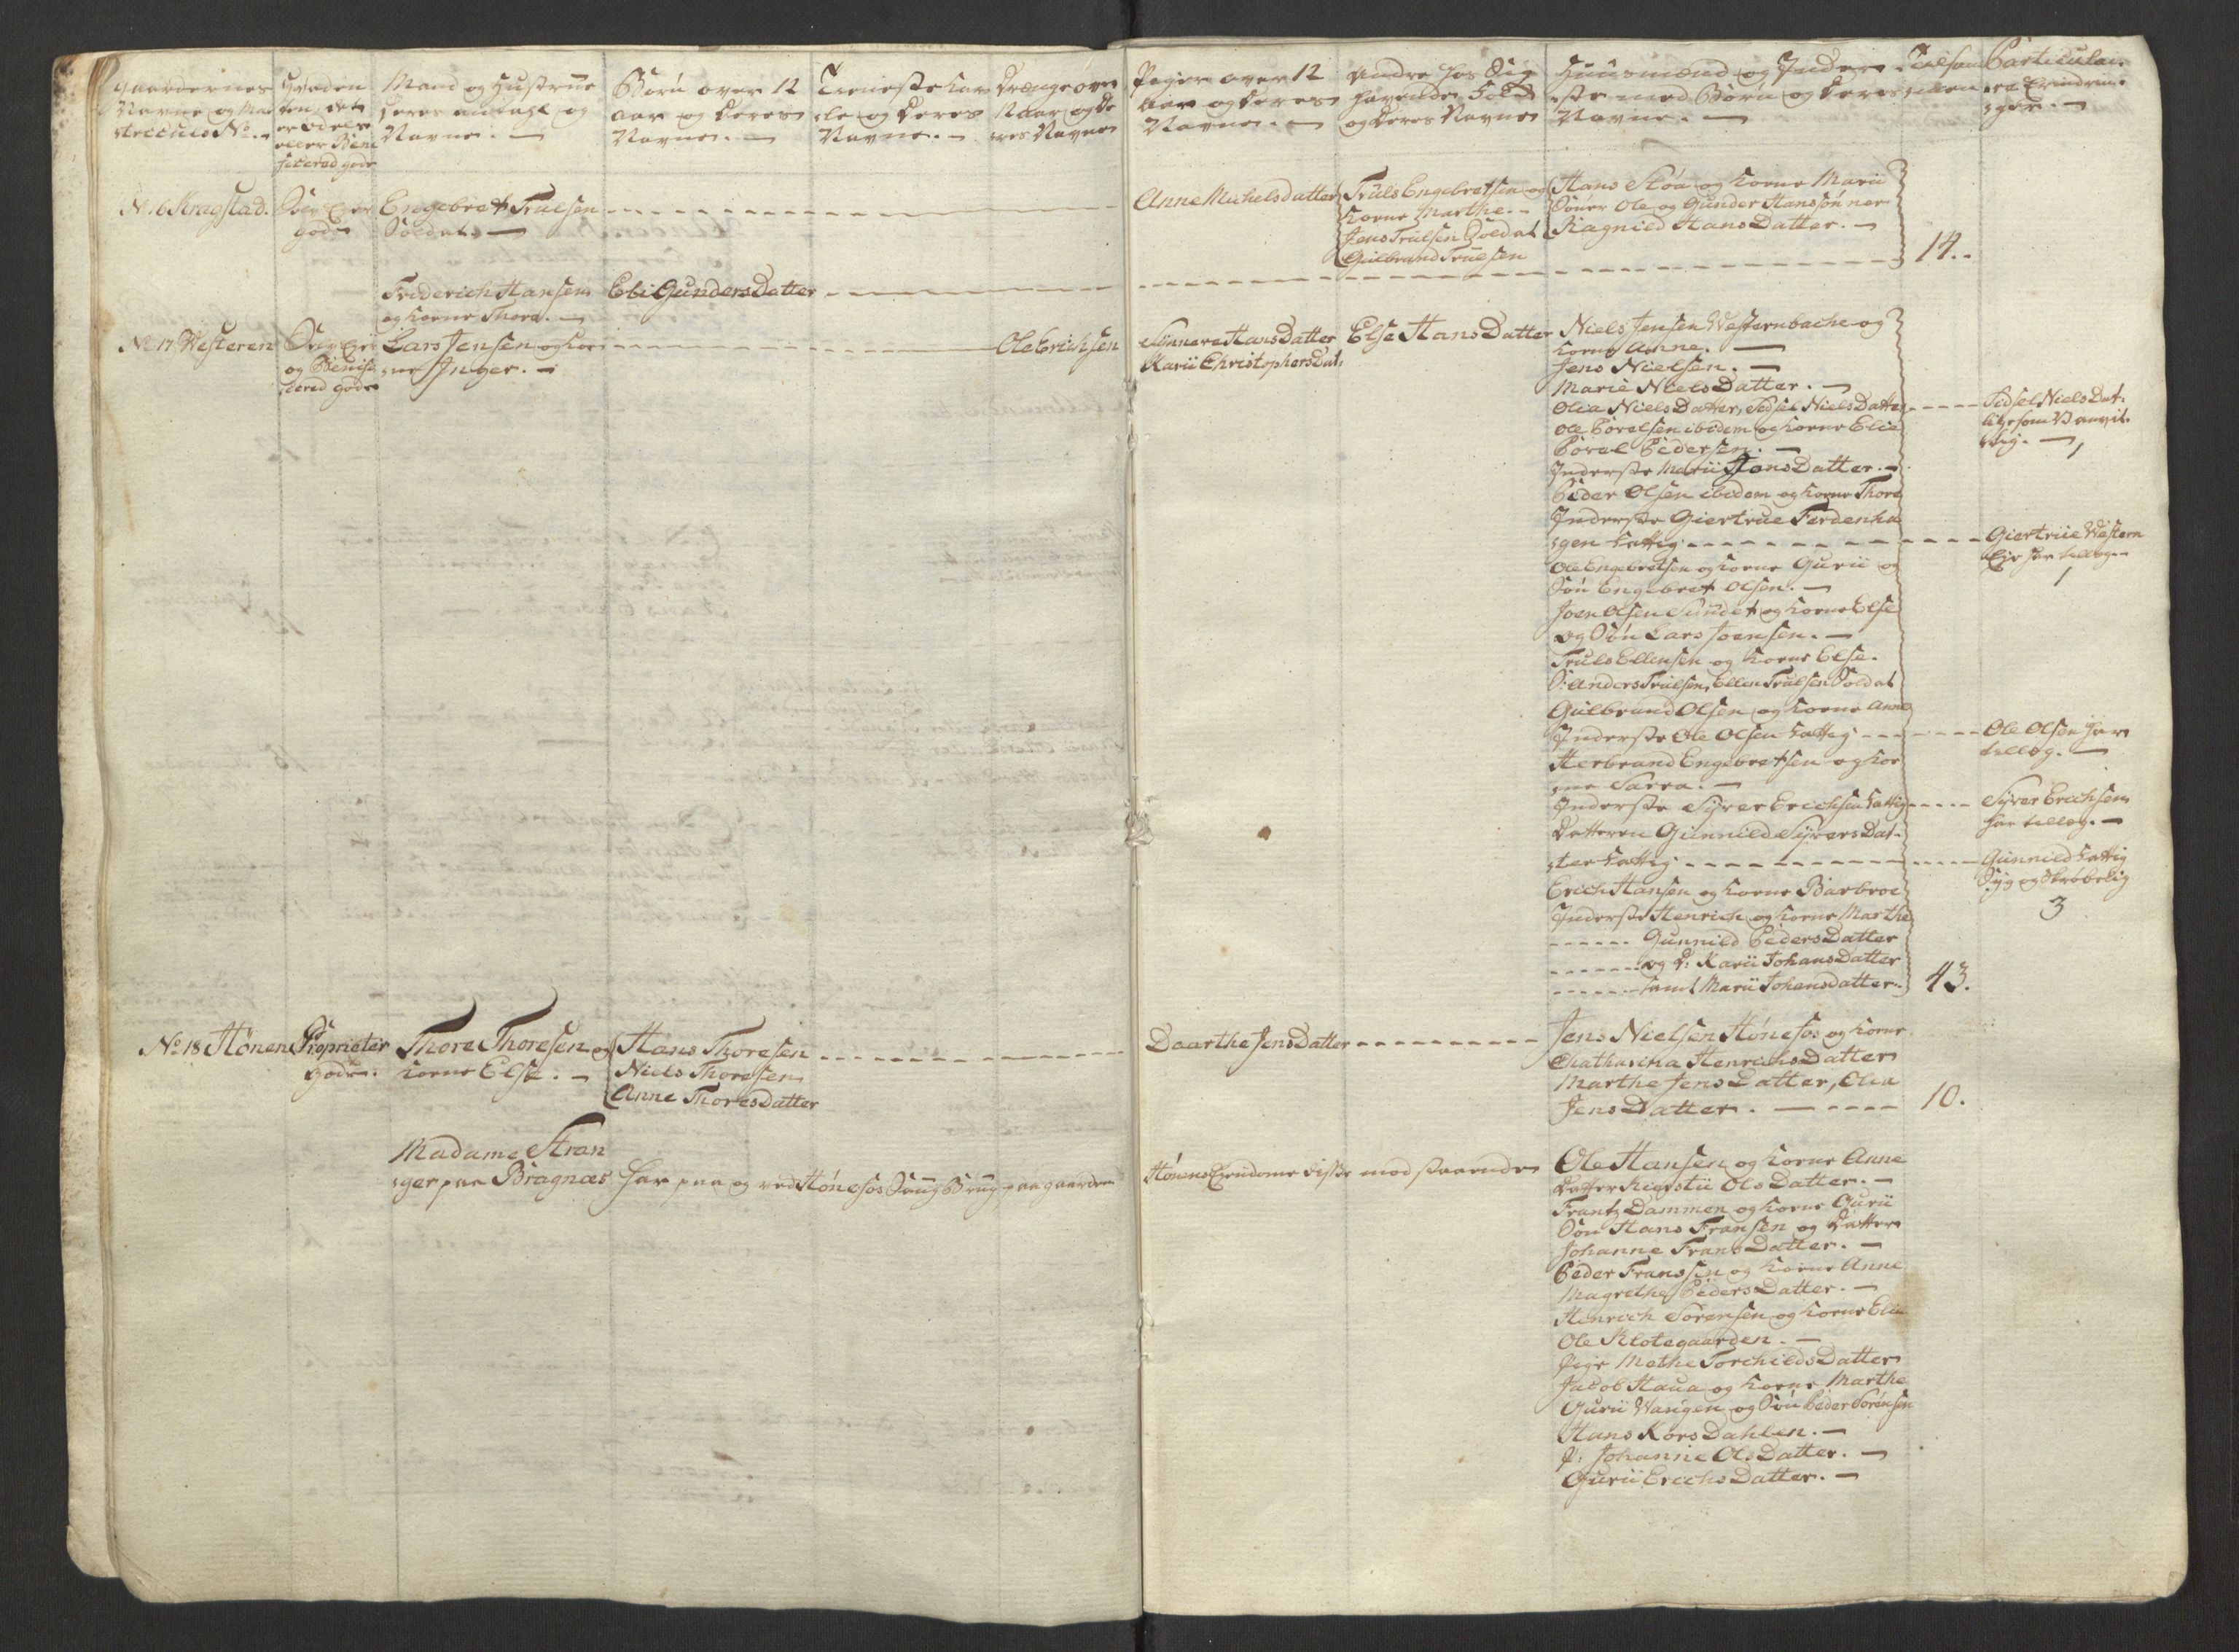 Gaardernes
Navne og Ma
triculs No.
Hvaden
ten, det
er Odels
eller Beni
ficered gods
Mand og Hustrue
deres antall og
Navne. —
Børn over 12
aar og deres
Navne. —
Tieneste Kar
le og deres
Navne. —
Drænge over
12 aar og de
res Navne
Piger over 12
aar og deres
Navne. —
Andre hos Sig
havende Folk
og deres Navne
Huusmænd og Inder
ste med Børn og deres
Navne. —
Particulai
re Erindrin
ger. —
No 16 Kragstad.
gods
Engebret Trulsen
Soldat. —
Anne Michelsdatter
Truls Engebretsen og
Kone Marthe. —
Jens Trulsen Soldat
Gulbrand Trulsen
Hans Sløa og Kone Marii
Sønner Ole og Gunder Hanssønner
Ragnild Hans Datter. —
14.
Friderich Hansen
og Kone Thore. —
Ebi Gunders Datter
No 17 Westeren
og Benifi
cered gods
Lars Jensen og Ko
ne Inger. —
Ole Erichsen
Sønnere Hans Datter
Karii Christophers Dat.
Else Hans Datter
Niels Jensen Westernbache og
Kone Anne. —
Jens Nielsen. —
Marie Niels Datter. —
Olia Niels Datter, Sidsel Niels Datter
Ole Povelsen ibidem og Kone Elie
Povel Pedersen. —
Inderste Marii Hans Datter. —
Peder Olsen ibidem og Kone Thore
Inderste Giertrue Ferdenha
gen fattig
Ole Engebretsen og Kone Gurii og
Søn Engebret Olsen. —
Joen Olsen Sundet og Kone Else
og Søn Lars Joensen. —
Truls Ellensen og Kone Else.
S: Anders Trulsen, Ellen Trulsen Soldat
Gulbrand Olsen og Kone Anne
Inderste Ole Olsen fattig
Herbrand Engebretsen og Ko
ne Sarra. —
Inderste Syver Erichsen fattig
Datteren Gunnild Syvers Dat
ter fattig
Erich Hansen og Kone Barbroe
Inderste Henrich og Kone Marthe
Gunnild Peders Datter
og D: Karii Johans Datter
samt Marii Johansdatter.
43.
Sidsel Niels Dat.
ligesom Vanvit
tig. —
Giertrue Western
1
Ole Olsen har
tillæg. —
Syver Erichsen
har tillæg. —
Gunnild fattig
Syg og Skrøbelig
3
No 18 Hønen
Proprietær
Gods.
Thore Thoresen og
Kone Else. —
Hans Thoresen
Niels Thoresen
Anne Thoresdatter
Daarthe Jens Datter
Jens Nielsen Hønefos og Kone
Chatharina Henrichs Datter
Marthe Jens Datter, Olia
Jens Datter. —
10.
Madame Stran
ger paa Bragnæs har paa og ved Hønefos Saug Brug paa gaarden
Hønens Eiendomme disse modstaaende
Ole Hansen og Kone Anne
Datter Kierstii Ols Datter. —
Frantz Dammen og Kone Gurii
Søn Hans Fransen og Datter
Johanne Frans Datter. —
Peder Franssen og Kone Anne
Magrethe Peders Datter. —
Henrich Sørensen og Kone Elie
Ole Klotegaarden. —
Pige Methe Torchilds Datter
Jacob Haua og Kone Marthe
Gurii Wangen og Søn Peder Sørensen
Hans Kors Dahlen. —
P: Johanne Ols Datter. —
Gurii Erichs Datter. —